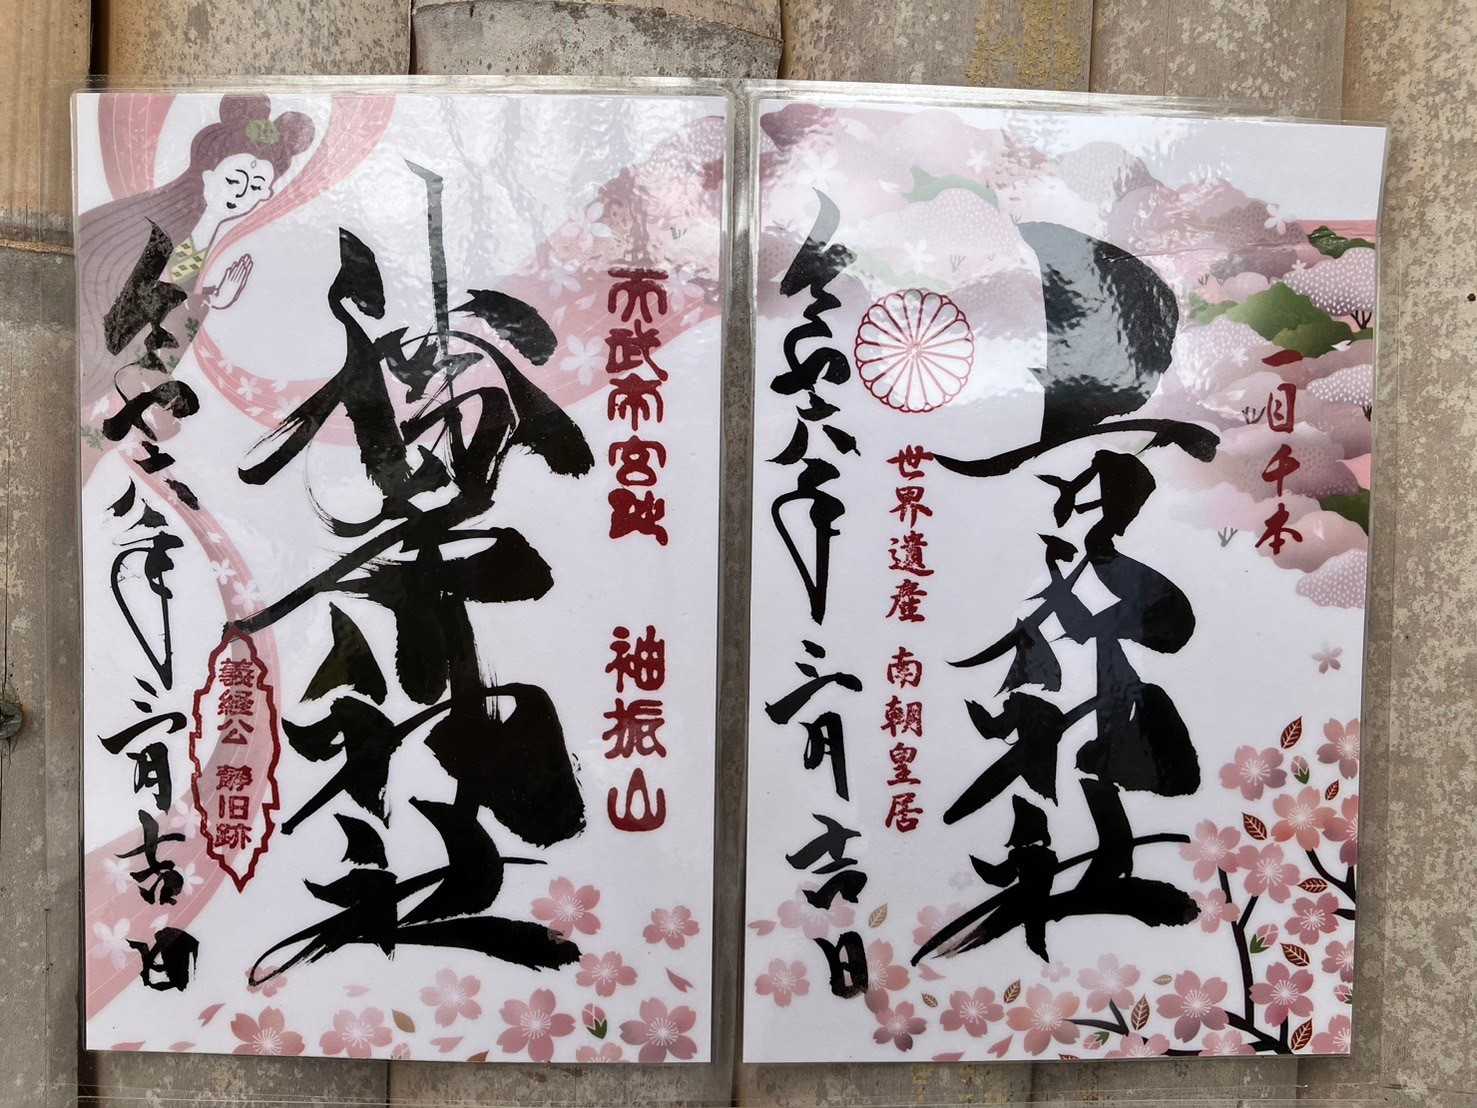 一目千本
吉水神社
世界遺産 南朝皇居
令和六年三月吉日
天武帝宮跡 袖振山
勝手神社
義経公 静旧跡
令和六年三月吉日